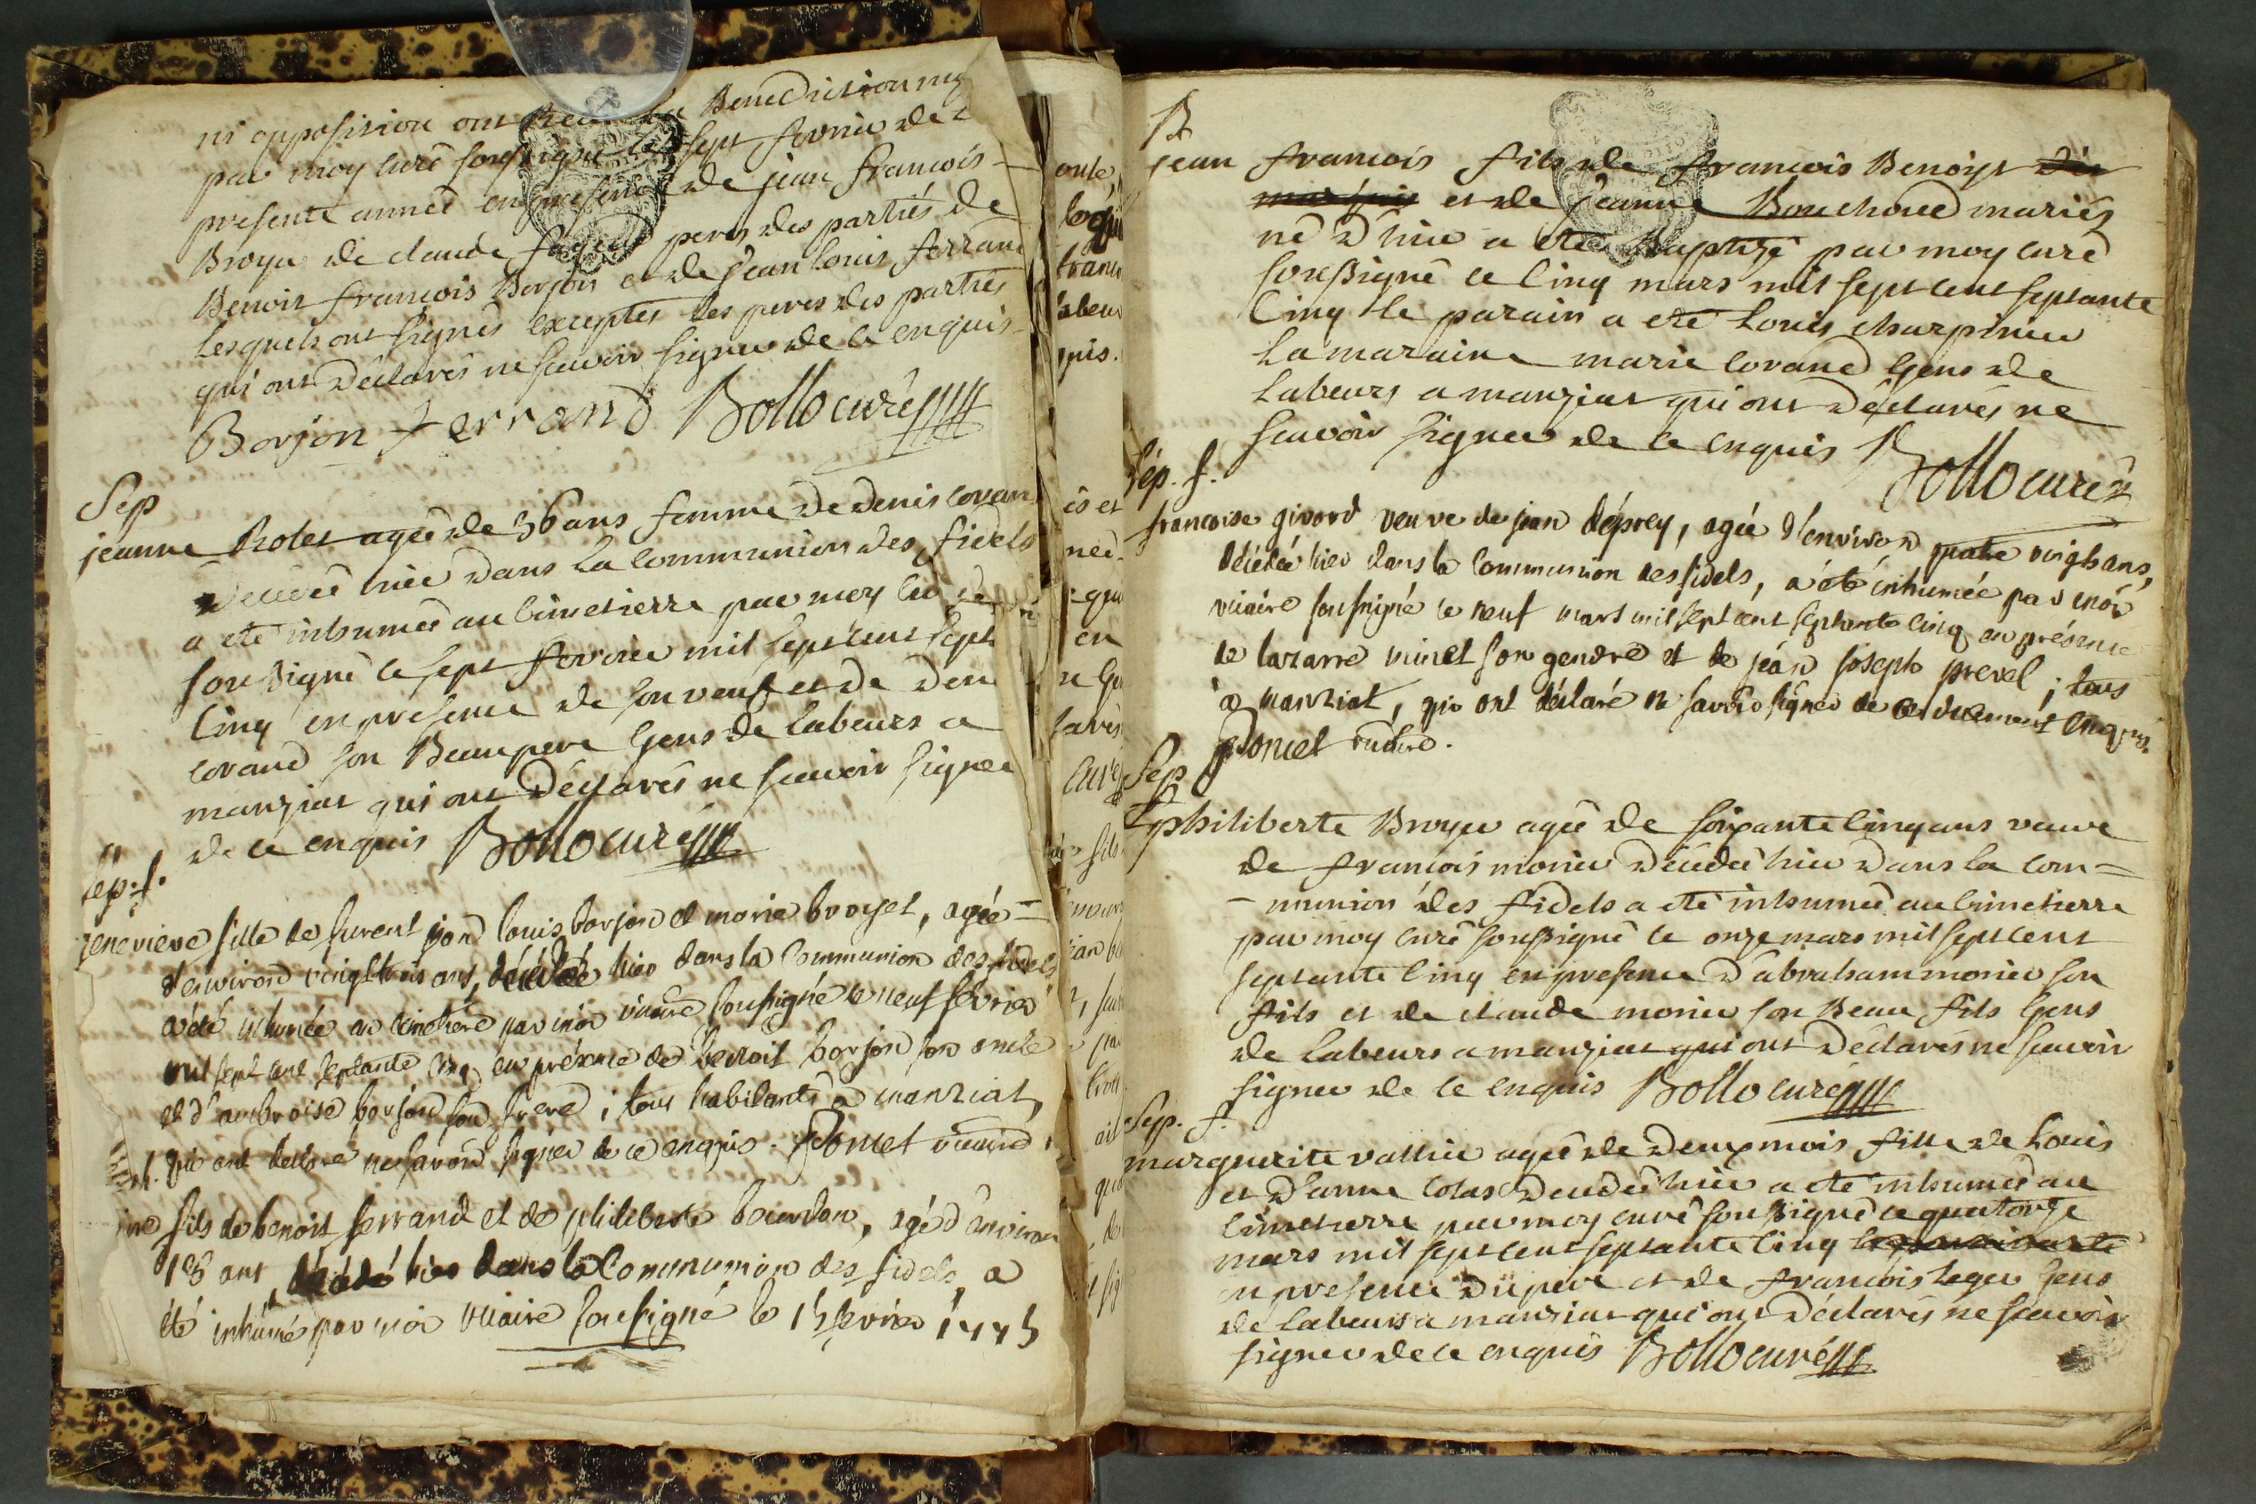 ni opposition ont Reçu La Benediction
par moy curé soussigné le sept fevrier de
presente année en presence de jean francois
Broyer de claude peres des partiés de
Benoit francois Borjon et de jean louis ferrand
Lesquels ont signés exceptés les peres des partiés
qui ont Déclarés ne scavoir signer de ce enquis
Borjon ferrand Bollo curé
Sep
jeanne Rolet agée de 36 ans femme de denis covan
Decedée hier dans La communion des fidels
a eté inhumée au cimetierre par moy
soussigné le sept fevrier mil sept cent sept
cinq en presence de son veuf et de
covand son Beaupere Gens de Labeurs a
manziat qui ont Déclarés ne scavoir signer
de ce enquis Bollo curé
sep. f.
genevieve fille de furent jean louis borjon et marie broyet, agée
d'environ vingt trois ans, décédée hier dans la Communion des fidels
a été inhumée au cimetiere par moi vicaire soussigné le neuf février
mil sept cent septante cinq en présence de benoit borjon son oncle
et d'ambroise borjon son frere ; tous habitants à manziat,
qui ont déclaré ne savoir signer de ce enquis. Poncet vicaire
fils de benoist ferrand et de philiberte bourdon, agé d'environ
18 ans, décédé hier dans la Communion des fidels, a
été inhumé par moi vicaire soussigné le 15 fevrier 1775
onle
franc
labeur
quis.
és et
née
qu
en
curé
fils
B
jean francois fils de francois Benoist dit
et de jeanne Bouchoud mariés
né d'hier a eté Baptizé par moy curé
soussigné le cinq mars mil sept cent septante
Cinq le parain a eté Louis charpinier
La maraine marie covand Gens de
Labeurs a manziat qui ont Déclarés ne
scavoir signer de ce enquis Bollo curé
Sép. f.
francoise givord veuve de jean déprey, agée d'environ quatre vingt ans,
décédée hier dans la Communion des fidels, a été inhumée par moi
vicaire soussigné le neuf mars mil sept cent septante cinq en présence
de lazarre vinet son gendre et de jean joseph prevel ; tous
à manziat, qui ont déclaré ne savoir signer de ce duement enquis.
Poncet vicaire.
Sep
philiberte Broyer agée de soixante cinq ans veuve
de francois monier Decedée hier dans la com=
-munion des fidels a eté inhumée au cimetierre
par moy curé soussigné le onze mars mil sept cent
septante cinq en presence d'abraham monier son
fils et de claude monier son Beau fils Gens
de Labeurs a manziat qui ont Déclarés ne scavoir
signer de ce enquis Bollo curé
Sep. f.
marguerite vallier agée de deux mois fille de Louis
et d'anne colas Decedée hier a eté inhumée au
cimetierre par moy curé soussigné le quatorze
mars mil sept cent septante cinq
en presence du pere et de francois leger Gens
de labeurs a manziat qui ont Déclarés ne scavoir
signer de ce enquis Bollo curé